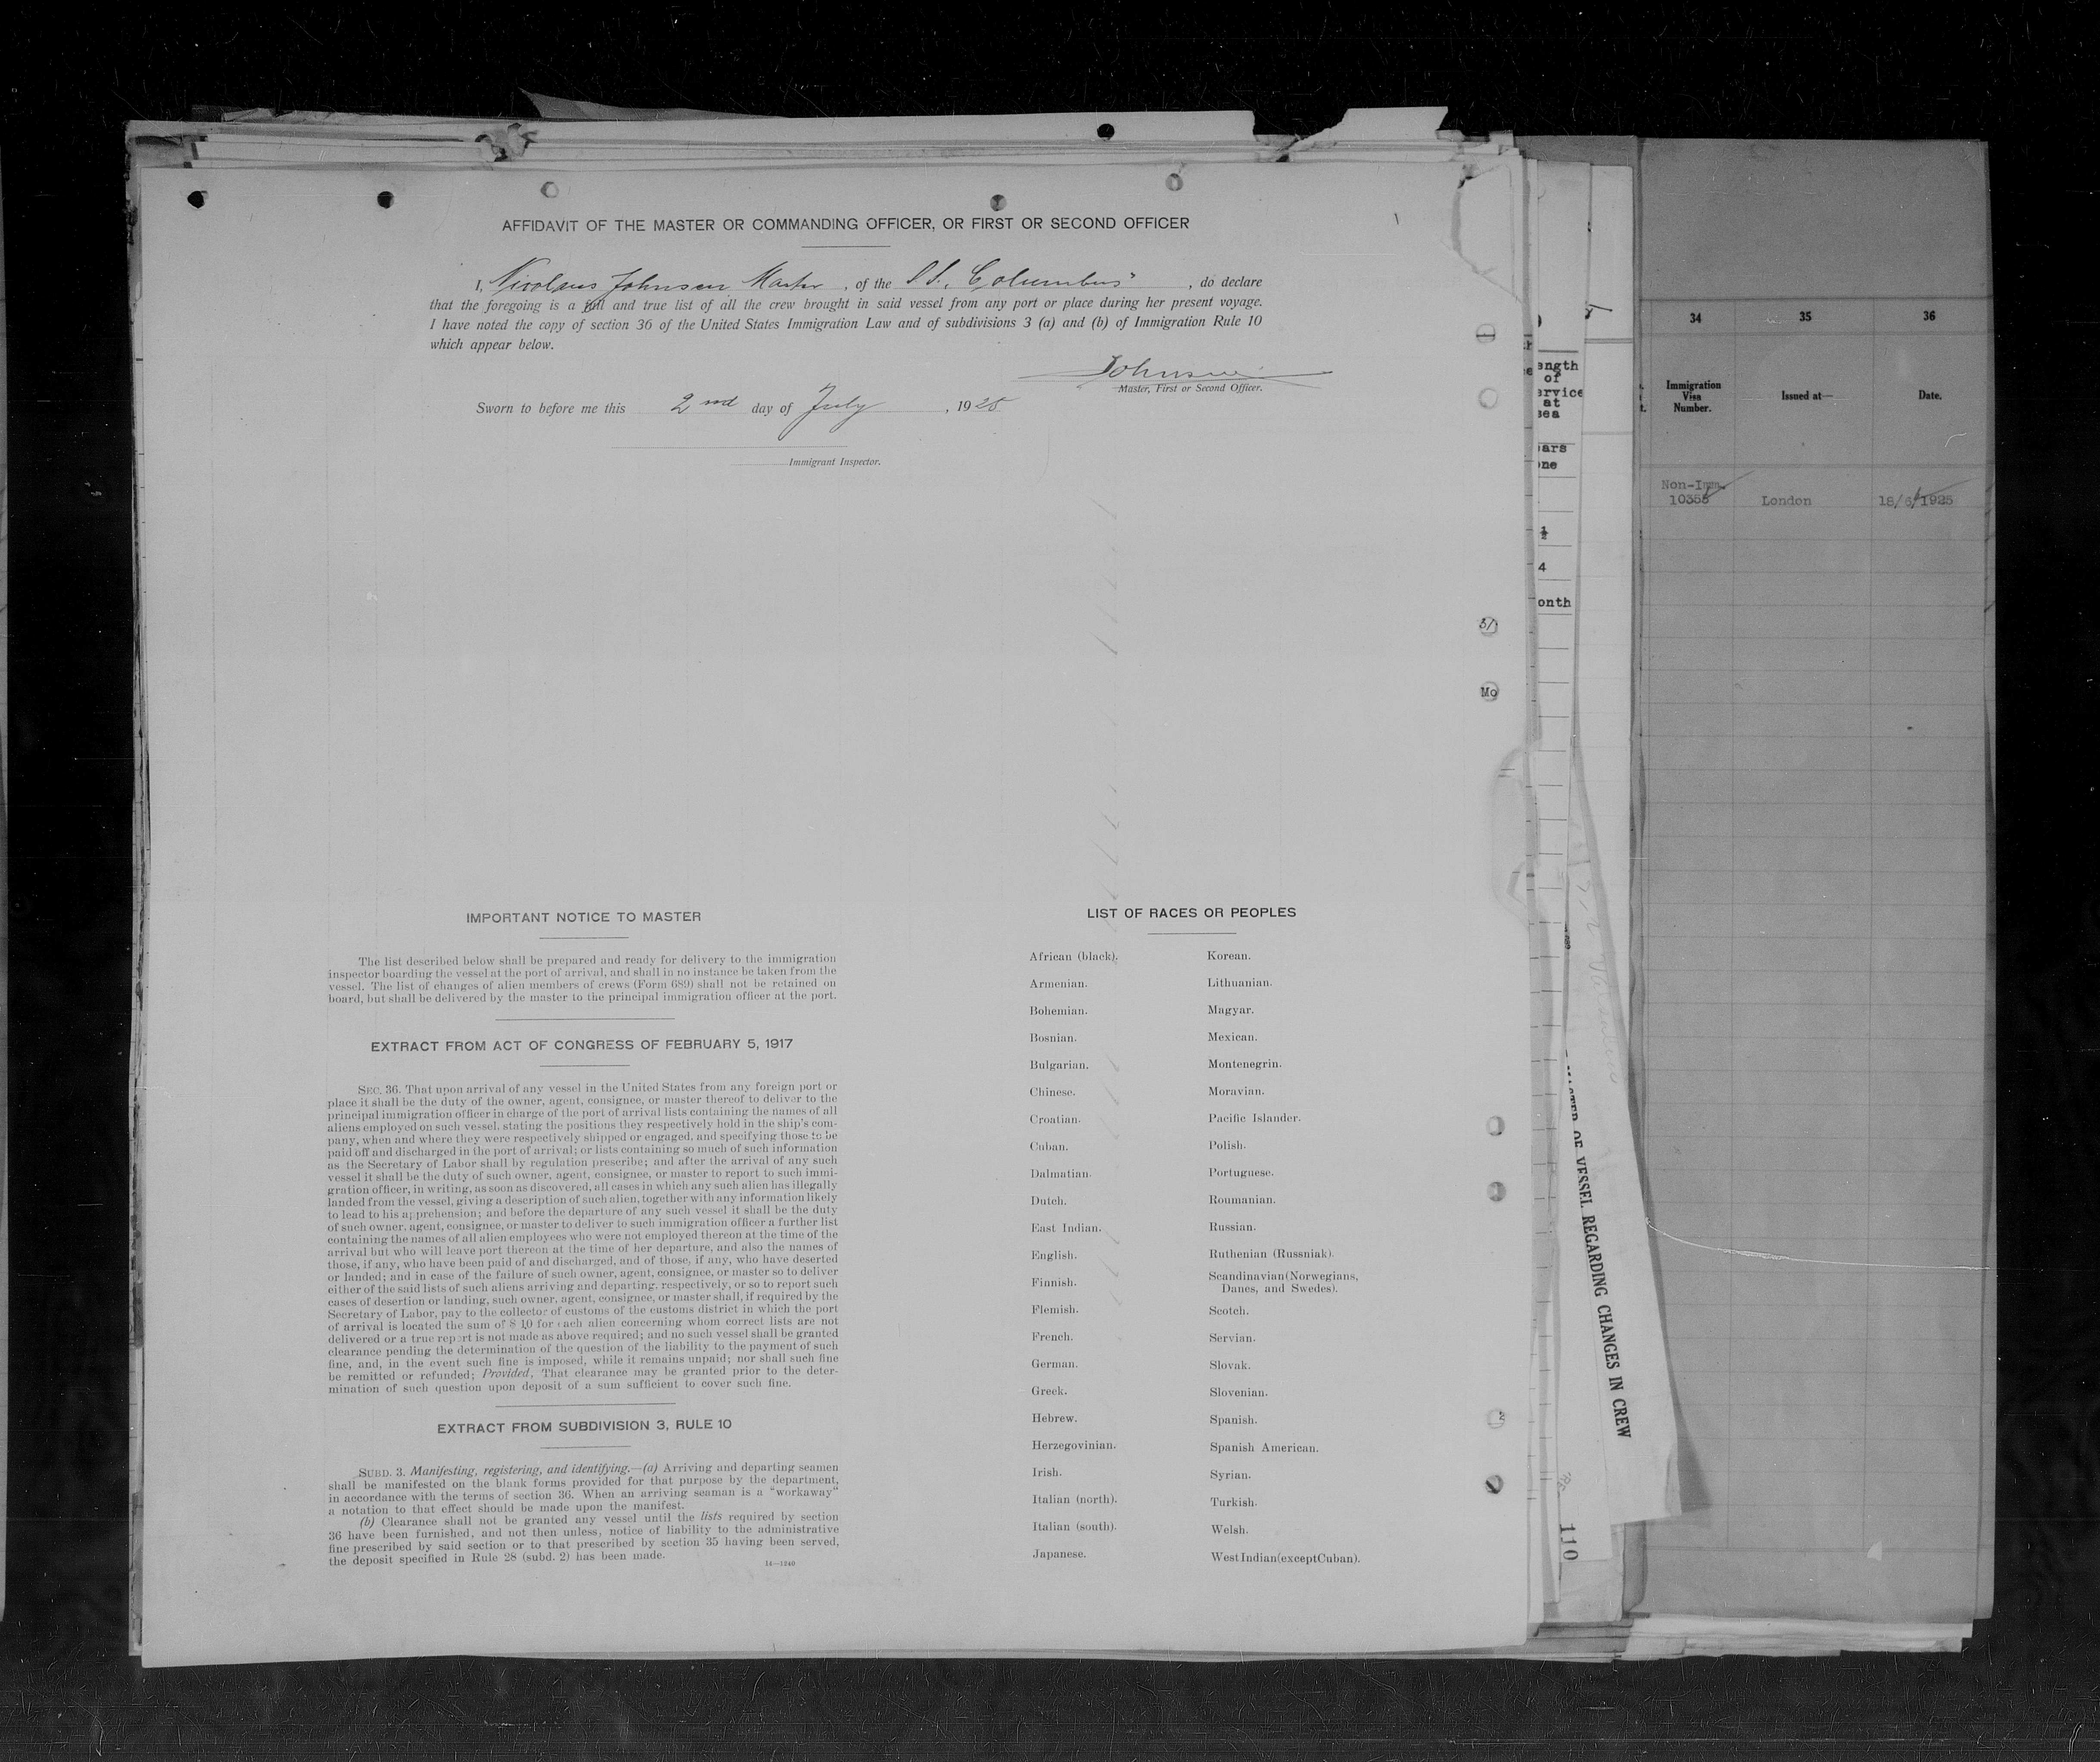 AFFIDAVIT OF THE MASTER OR COMMANDING OFFICER, OR FIRST OR SECOND OFFICER
I, Nicolaus Johnsen Master, of the S.S. „Columbus", do declare
that the foregoing is a full and true list of all the crew brought in said vessel from any port or place during her present voyage.
I have noted the copy of section 36 of the United States Immigration Law and of subdivisions 3 (a) and (b) of Immigration Rule 10
which appear below.
Johnsen
Master, First or Second Officer.
Sworn to before me this 2nd day of July, 1925
Immigrant Inspector.
IMPORTANT NOTICE TO MASTER
The list described below shall be prepared and ready for delivery to the immigration
inspector boarding the vessel at the port of arrival, and shall in no instance be taken from the
vessel. The list of changes of alien members of crews (Form 689) shall not be retained on
board, but shall be delivered by the master to the principal immigration officer at the port.
EXTRACT FROM ACT OF CONGRESS OF FEBRUARY 5, 1917
SEC. 36. That upon arrival of any vessel in the United States from any foreign port or
place it shall be the duty of the owner, agent, consignee, or master thereof to deliver to the
principal immigration officer in charge of the port of arrival lists containing the names of all
aliens employed on such vessel, stating the positions they respectively hold in the ship's com-
pany, when and where they were respectively shipped or engaged, and specifying those to be
paid off and discharged in the port of arrival; or lists containing so much of such information
as the Secretary of Labor shall by regulation prescribe; and after the arrival of any such
vessel it shall be the duty of such owner, agent, consignee, or master to report to such immi-
gration officer, in writing, as soon as discovered, all cases in which any such alien has illegally
landed from the vessel, giving a description of such alien, together with any information likely
to lead to his apprehension; and before the departure of any such vessel it shall be the duty
of such owner, agent, consignee, or master to deliver to such immigration officer a further list
containing the names of all alien employees who were not employed thereon at the time of the
arrival but who will leave port thereon at the time of her departure, and also the names of
those, if any, who have been paid of and discharged, and of those, if any, who have deserted
or landed; and in case of the failure of such owner, agent, consignee, or master so to deliver
either of the said lists of such aliens arriving and departing, respectively, or so to report such
cases of desertion or landing, such owner, agent, consignee, or master shall, if required by the
Secretary of Labor, pay to the collector of customs of the customs district in which the port
of arrival is located the sum of $ 10 for each alien concerning whom correct lists are not
delivered or a true report is not made as above required; and no such vessel shall be granted
clearance pending the determination of the question of the liability to the payment of such
fine, and, in the event such fine is imposed, while it remains unpaid; nor shall such fine
be remitted or refunded; Provided, That clearance may be granted prior to the deter-
mination of such question upon deposit of a sum sufficient to cover such fine.
EXTRACT FROM SUBDIVISION 3, RULE 10
SUBD. 3. Manifesting, registering, and identifying.—(a) Arriving and departing seamen
shall be manifested on the blank forms provided for that purpose by the department,
in accordance with the terms of section 36. When an arriving seaman is a "workaway"
a notation to that effect should be made upon the manifest.
(b) Clearance shall not be granted any vessel until the lists required by section
36 have been furnished, and not then unless, notice of liability to the administrative
fine prescribed by said section or to that prescribed by section 35 having been served,
the deposit specified in Rule 28 (subd. 2) has been made.
14—1240
LIST OF RACES OR PEOPLES
African (black).
Armenian.
Bohemian.
Bosnian.
Bulgarian.
Chinese.
Croatian.
Cuban.
Dalmatian.
Dutch.
East Indian.
English.
Finnish.
Flemish.
French.
German.
Greek.
Hebrew.
Herzegovinian.
Irish.
Italian (north).
Italian (south).
Japanese.
Korean.
Lithuanian.
Magyar.
Mexican.
Montenegrin.
Moravian.
Pacific Islander.
Polish.
Portuguese.
Roumanian.
Russian.
Ruthenian (Russniak).
Scandinavian (Norwegians,
Danes, and Swedes).
Scotch.
Servian.
Slovak.
Slovenian.
Spanish.
Spanish American.
Syrian.
Turkish.
Welsh.
West Indian (except Cuban).
5/
Mo
ength
of
ervice
at
sea
ears
one
½
4
onth
OF VESSEL REGARDING CHANGES IN CREW
110
34
35
36
Immigration
Visa
Number.
Issued at—
Date.
Non-Imm.
10358
London
18/6/1925